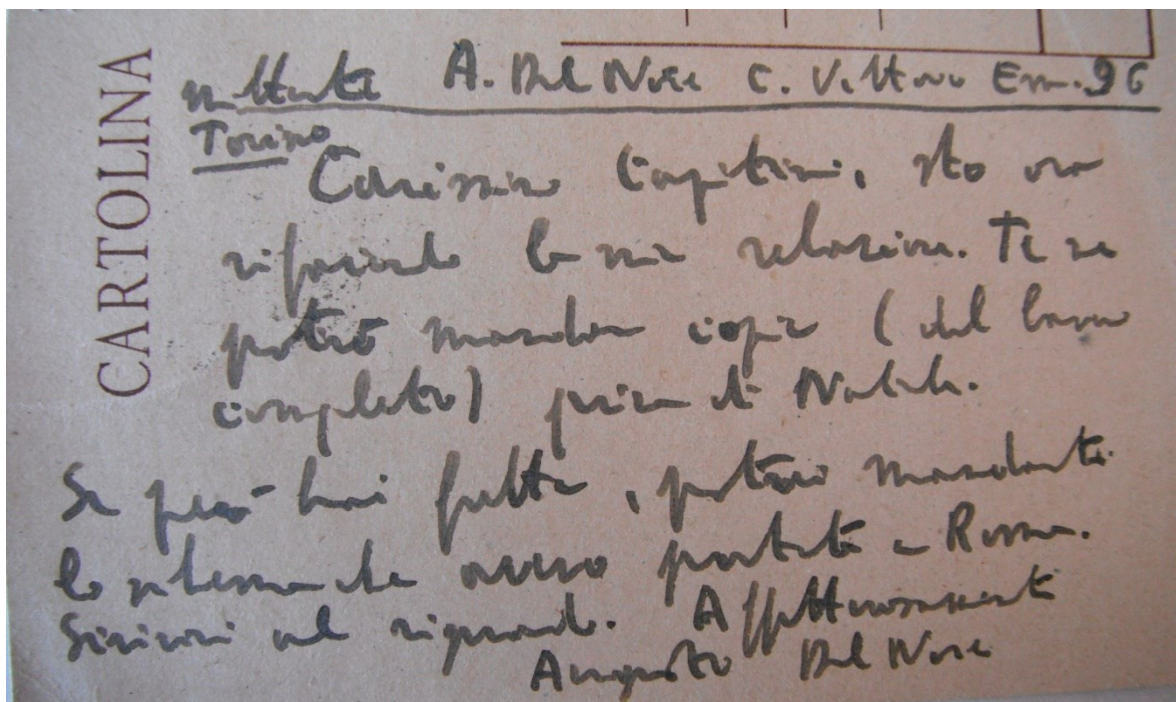 CARTOLINA
mittente A. Del Noce C. Vittorio Em. 96
Torino
Carissimo Capitini, sto ora
rifacendo la mia relazione. Te ne
potrò mandare copia (del lavoro
completo) prima di Natale.
Se però hai fretta, potrei mandarti
lo schema che avevo portato a Roma.
Scrivimi al riguardo. Affettuosamente
Augusto Del Noce